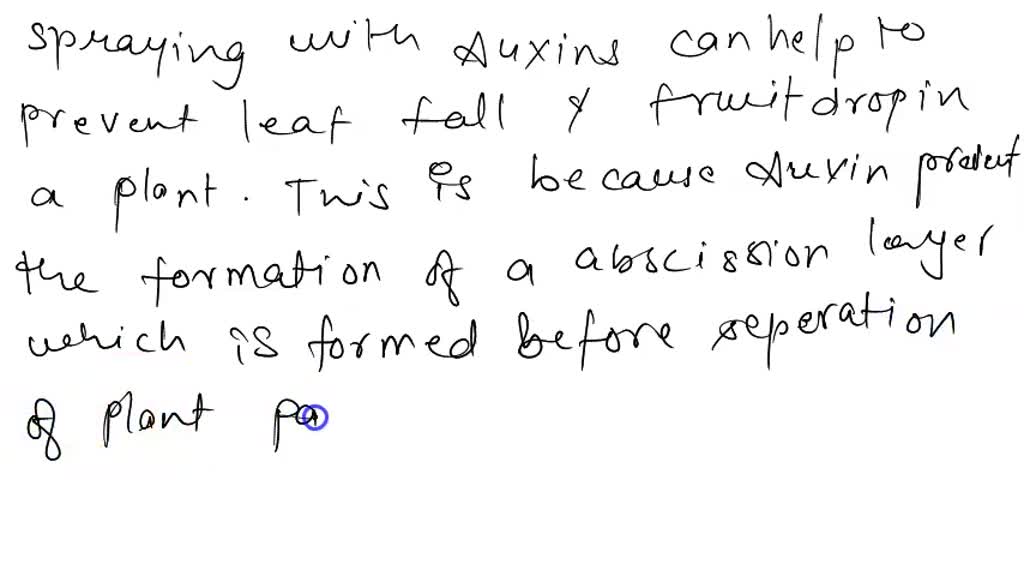 spraying with Auxins can help to
prevent leaf fall & fruit drop in
a plant. This is because Auxin prevent
the formation of a abscission layer
which is formed before seperation
of plant pa